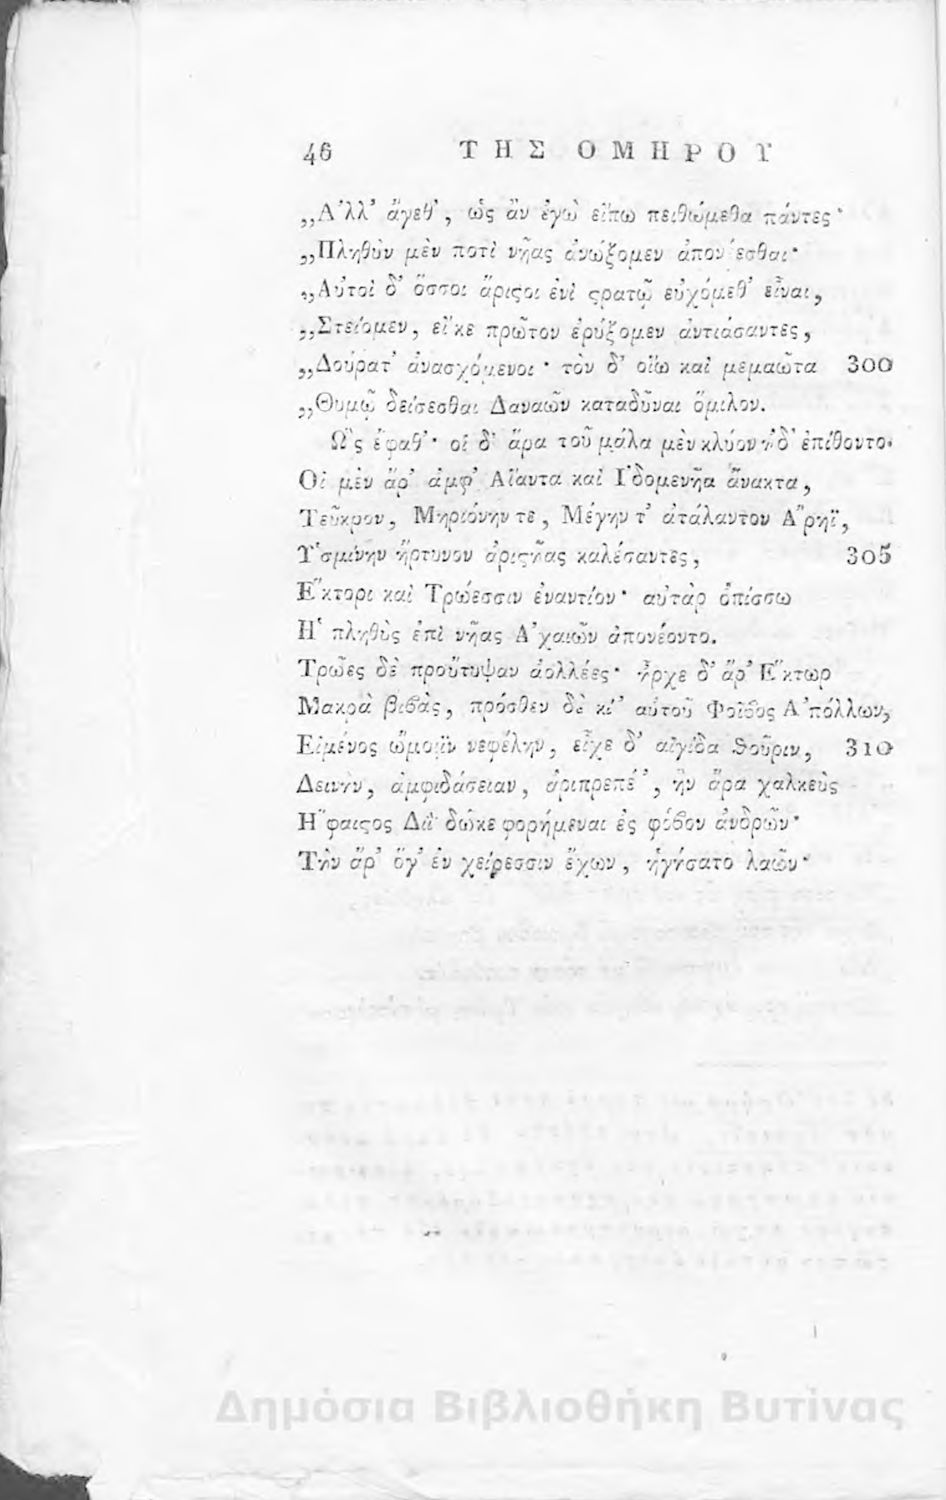 46 ΤΗΣ ΟΜΗΡΟΥ
„Ἀλλ᾽ ἄγεθ᾽, ὡς ἂν ἐγὼ εἴπω πειθώμεθα πάντες·
„Πληθὺν μὲν ποτὶ νῆας ἀνώξομεν ἀπονέεσθαι·
„Αὐτοὶ δ᾽ ὅσσοι ἄριϛοι ἐνὶ ϛρατῷ εὐχόμεθ᾽ εἶναι,
„Στείομεν, εἴ κε πρῶτον ἐρύξομεν ἀντιάσαντες,
„Δούρατ᾽ ἀνασχόμενοι· τὸν δ᾽ οἴω καὶ μεμαῶτα 300
„Θυμῷ δείσεσθαι Δαναῶν καταδῦναι ὅμιλον.
Ὣς ἔφαθ᾽· οἱ δ᾽ ἄρα τοῦ μάλα μὲν κλύον ἠδ᾽ ἐπίθοντο·
Οἱ μὲν ἄρ᾽ ἀμφ᾽ Αἴαντα καὶ Ἰδομενῆα ἄνακτα,
Τεῦκρον, Μηριόνην τε, Μέγην τ᾽ ἀτάλαντον Ἄρηϊ,
Ὑσμίνην ἤρτυνον ἀριϛῆας καλέσαντες, 305
Ἕκτορι καὶ Τρώεσσιν ἐναντίον· αὐτὰρ ὀπίσσω
Ἡ πληθὺς ἐπὶ νῆας Ἀχαιῶν ἀπονέοντο.
Τρῶες δὲ προὔτυψαν ἀολλέες· ἦρχε δ᾽ ἄρ᾽ Ἕκτωρ
Μακρὰ βιβὰς, πρόσθεν δὲ κί᾽ αὐτοῦ Φοῖβος Ἀπόλλων,
Εἱμένος ὤμοιϊν νεφέλην, εἶχε δ᾽ αἰγίδα θοῦριν, 310
Δεινὴν, ἀμφιδάσειαν, ἀριπρεπέ᾽, ἣν ἄρα χαλκεὺς
Ἥφαιϛος Διῒ δῶκε φορήμεναι ἐς φόβον ἀνδρῶν·
Τὴν ἄρ᾽ ὅγ᾽ ἐν χείρεσσιν ἔχων, ἡγήσατο λαῶν·
Δημόσια Βιβλιοθήκη Βυτίνας